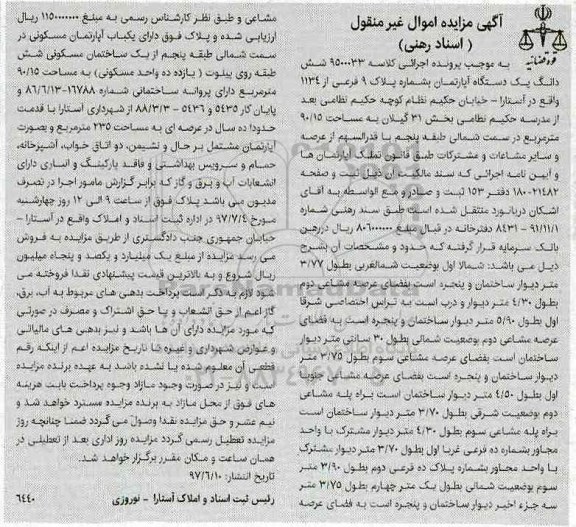 آگهی مزایده اموال غیر منقول
( اسناد رهنی )
قوه قضائیه
به موجب پرونده اجرائی کلاسه ۹۵۰۰۰۳۳ شش
دانگ یک دستگاه آپارتمان بشماره پلاک ۹ فرعی از ۱۱۳۴
واقع در آستارا - خیابان حکیم نظام کوچه حکیم نظامی بعد
از مدرسه حکیم نظامی بخش ۳۱ گیلان به مساحت ۹۰/۱۵
مترمربع در سمت شمالی طبقه پنجم با قدرالسهم از عرصه
و سایر مشاعات و مشترکات طبق قانون تملک آپارتمان ها
و آیین نامه اجرائی که سند مالکیت آن ذیل ثبت و صفحه
۱۸۰-۲۱۴۸۲ دفتر ۱۵۳ ثبت و صادر و مع الواسطه به آقای
اشکان دریانورد منتقل شده است طبق سند رهنی شماره
۹۱/۱۱/۱ - ۸۴۳۱ دفترخانه در قبال مبلغ ۸۰۶۰۰۰۰۰۰ ریال دررهن
بانک سرمایه قرار گرفته که حدود و مشخصات آن بشرح
ذیل می باشد: شمالا اول بوضعیت شمالغربی بطول ۳/۷۷
متر دیوار ساختمان و پنجره است بفضای عرصه مشاعی دوم
بطول ۴/۳۰ متر دیوار و درب است به تراس اختصاصی شرقا
اول بطول ۵/۹۰ متر دیوار ساختمان و پنجره است به فضای
عرصه مشاعی دوم بوضعیت شمالی بطول ۳۰ سانتی متر دیوار
ساختمان است بفضای عرصه مشاعی سوم بطول ۳/۷۵ متر
دیوار ساختمان و پنجره است بفضای عرصه مشاعی جنوبا
اول بطول ۴/۵۰ متر دیوار ساختمان است براه پله مشاعی
دوم بوضعیت شرقی بطول ۳/۷۰ متر دیوار ساختمان است
براه پله مشاعی سوم بطول ۴/۳۰ متر دیوار مشترک با واحد
مجاور بشماره ده فرعی غربا اول بطول ۳/۷۰ متر دیوار مشترک
با واحد مجاور بشماره پلاک ده فرعی دوم بطول ۳/۹۰ متر
سوم بوضعیت شمالی بطول یک متر چهارم بطول ۳/۷۵ متر
سه جزء اخیر دیوار ساختمان و پنجره است به فضای عرصه
مشاعی و طبق نظر کارشناس رسمی به مبلغ ۱۱۵۰۰۰۰۰۰۰ ریال
ارزیابی شده و پلاک فوق دارای یکباب آپارتمان مسکونی در
سمت شمالی طبقه پنجم از یک ساختمان مسکونی شش
طبقه روی پیلوت ( یازده ده واحد مسکونی) به مساحت ۹۰/۱۵
مترمربع دارای پروانه ساختمانی شماره ۱۶۷۸۸-۸۶/۶/۱۳ و
پایان کار ۵۴۳۵ و ۵۴۳۶ - ۸۸/۳/۳ از شهرداری آستارا با قدمت
حدودا ده سال در عرصه ای به مساحت ۲۳۵ مترمربع و بصورت
آپارتمان مشتمل بر حال و نشیمن، دو اتاق خواب، آشپزخانه،
حمام و سرویس بهداشتی و فاقد پارکینگ و انباری دارای
انشعابات آب و برق و گاز که برابر گزارش مامور اجرا در تصرف
مدیون می باشد پلاک فوق از ساعت ۹ الی ۱۲ روز چهارشنبه
مورخ ۹۷/۷/۴ در اداره ثبت اسناد و املاک واقع در آستارا -
خیابان جمهوری جنب دادگستری از طریق مزایده به فروش
می رسد مزایده از مبلغ یک میلیارد و یکصد و پنجاه میلیون
ریال شروع و به بالاترین قیمت پیشنهادی نقدا فروخته می
شود لازم به ذکر است پرداخت بدهی های مربوط به آب، برق،
گاز اعم از حق انشعاب و یا حق اشتراک و مصرف در صورتی
که مورد مزایده دارای آن ها باشد و نیز بدهی های مالیاتی
و عوارض شهرداری و غیره تا تاریخ مزایده اعم از اینکه رقم
قطعی آن معلوم شده یا نشده باشد به عهده برنده مزایده
است و نیز در صورت وجود مازاد وجوه پرداختی بابت هزینه
های فوق از محل مازاد به برنده مزایده مسترد خواهد شد و
نیم عشر و حق مزایده نقدا وصول می گردد ضمنا چنانچه روز
مزایده تعطیل رسمی گردد مزایده روز اداری بعد از تعطیلی در
همان ساعت و مکان مقرر برگزار خواهد شد.
تاریخ انتشار: ۹۷/۶/۱۰
رئیس ثبت اسناد و املاک آستارا - نوروزی
۶۴۴۰